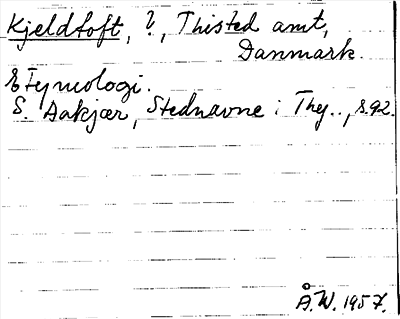 Kjeldtoft, ?, Thisted amt,
Danmark.
Etymologi.
S. Aakjær, Stednavne i Thy.., s.92.
Å.W. 1957.